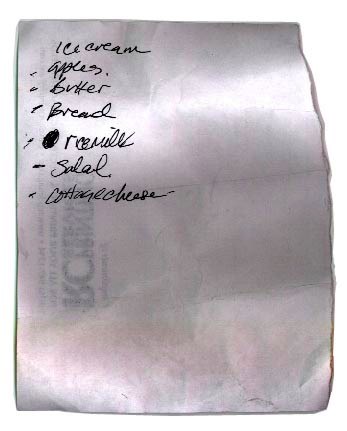 Ice cream
- apples.
- butter
- Bread
- ricemilk
- Salad.
- cottage cheese